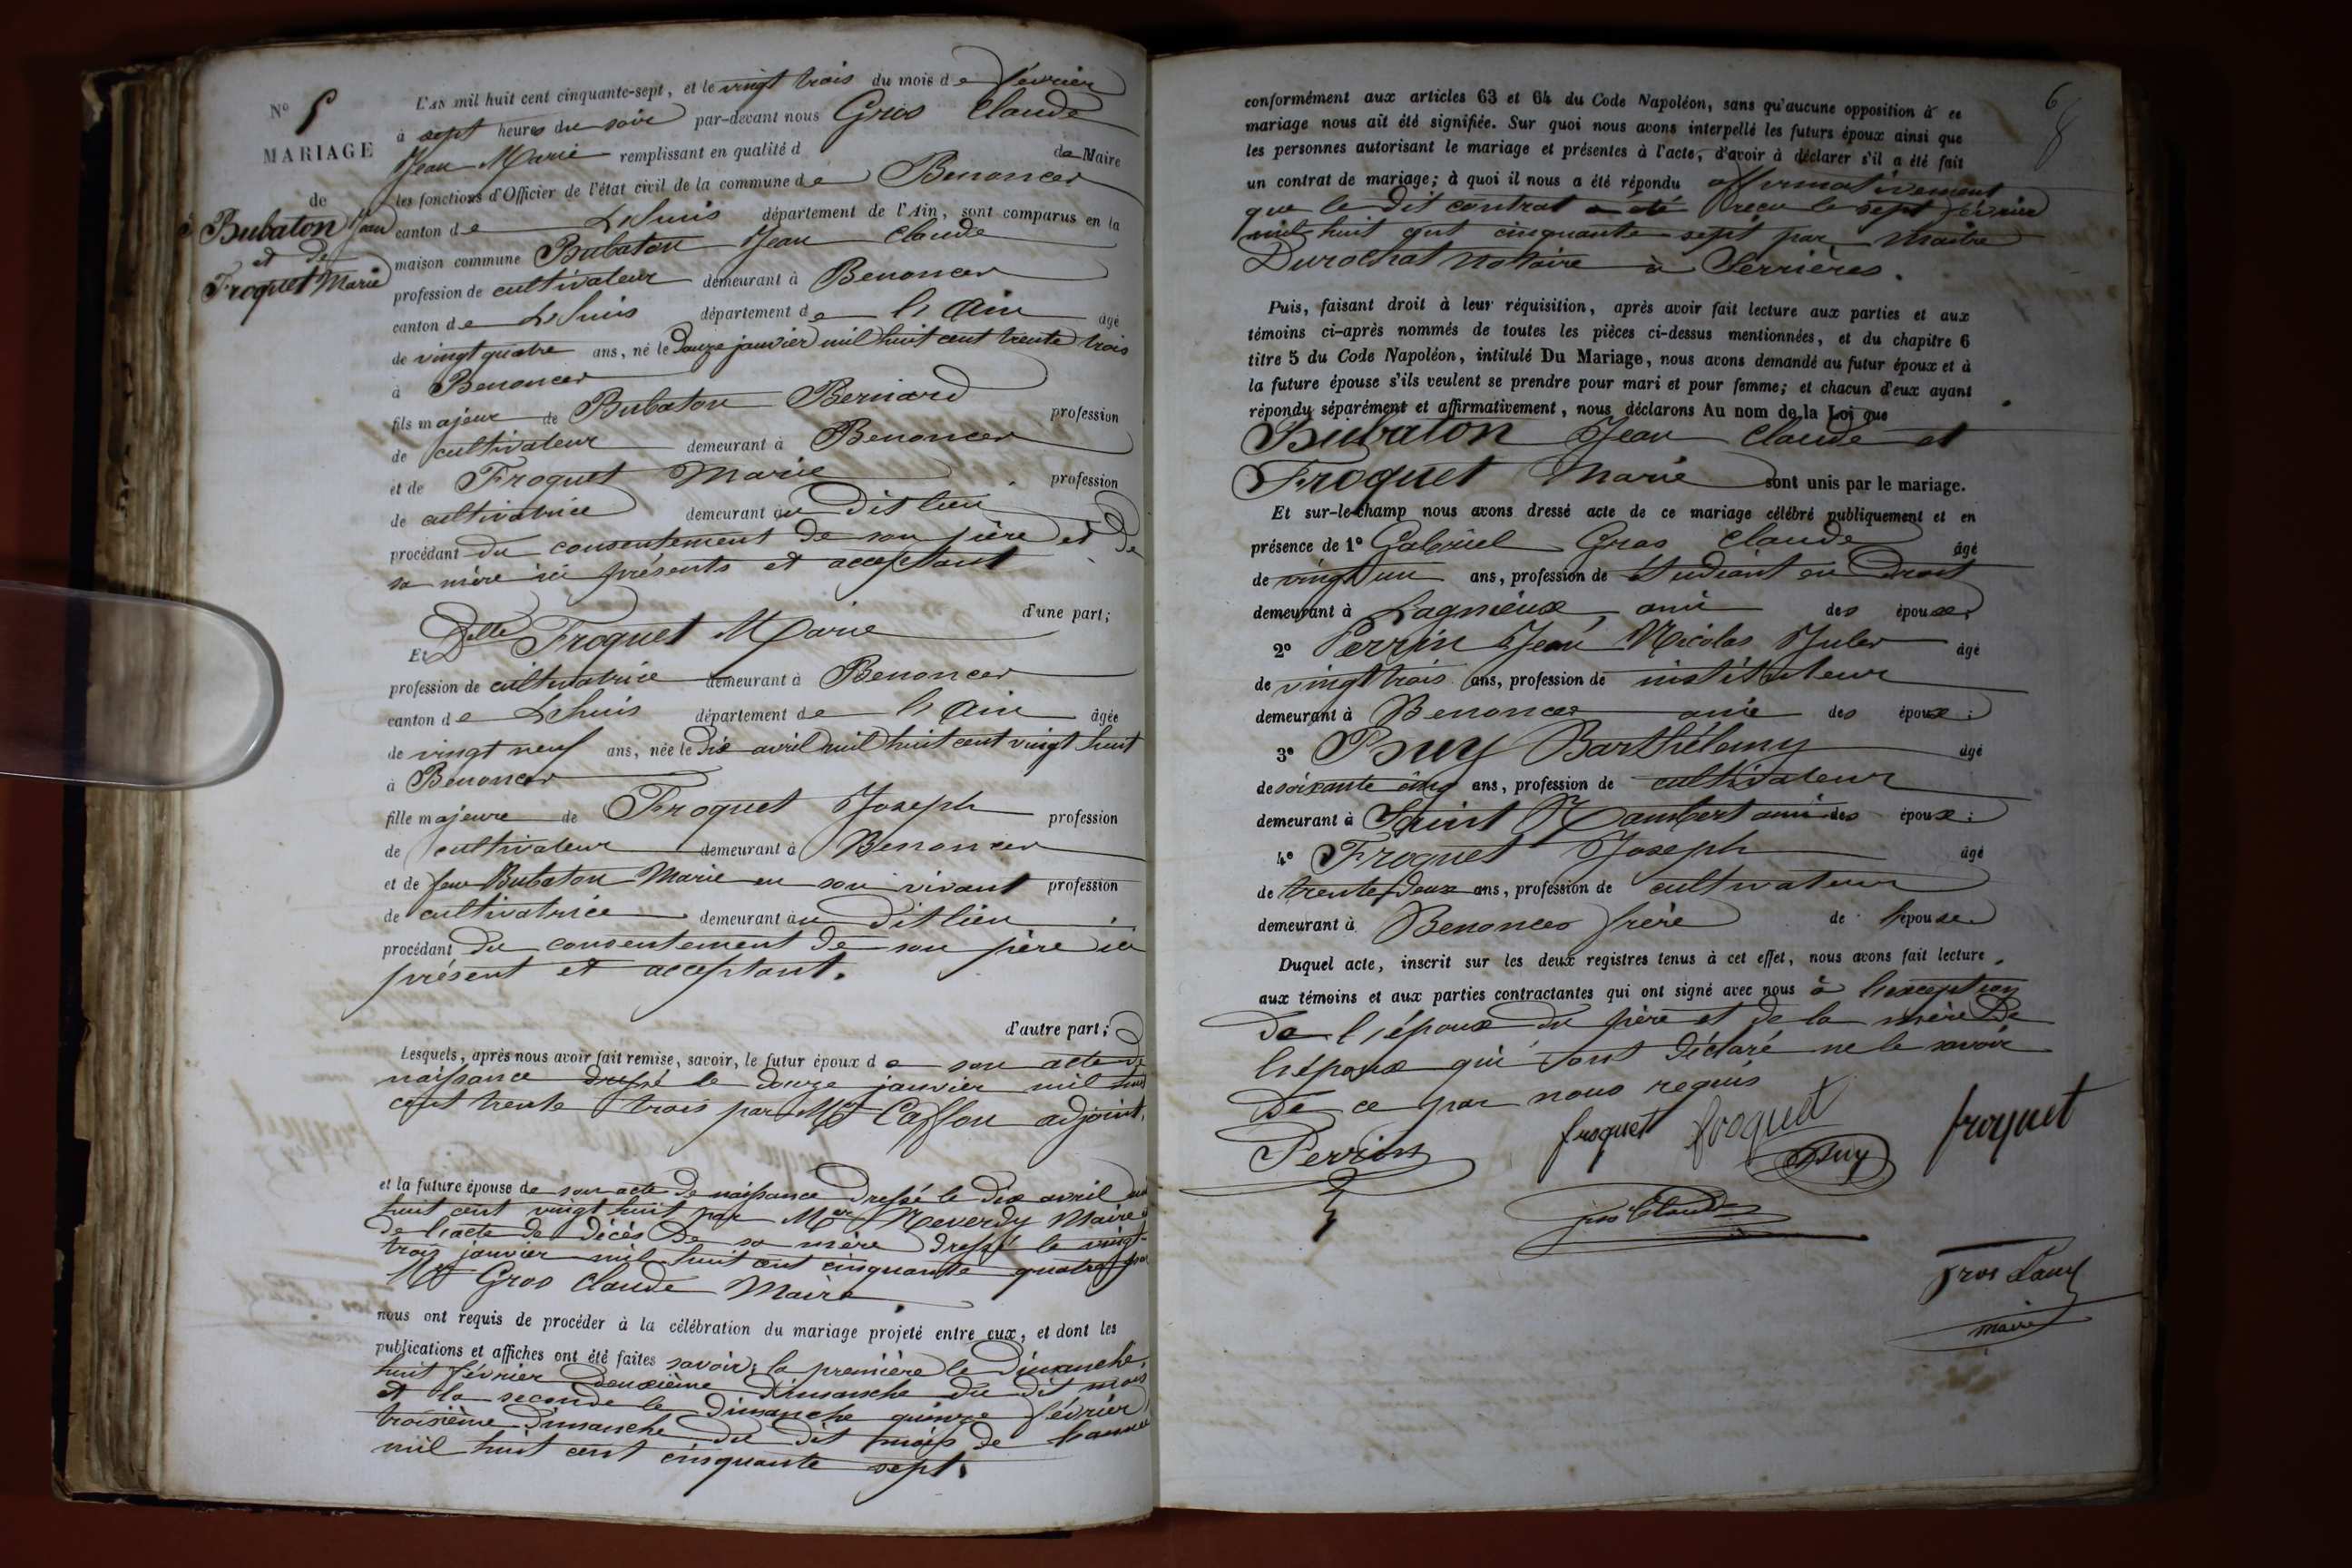 N° 5
MARIAGE
de
Bubaton Jean
et de
Froquet Marie
L'AN mil huit cent cinquante-sept, et le vingt trois du mois de février
à sept heures du soir par-devant nous Gros Claude
Jean Marie remplissant en qualité d de Maire
les fonctions d'Officier de l'état civil de la commune de Benonces
canton de Lhuis département de l'Ain, sont comparus en la
maison commune Bubaton Jean Claude
profession de cultivateur demeurant à Benonces
canton de Lhuis département de l'Ain âgé
de vingt quatre ans, né le Douze janvier mil huit cent trente trois
à Benonces
fils majeur de Bubaton Bernard profession
de cultivateur demeurant à Benonces
et de Froquet Marie profession
de cultivatrice demeurant au dit lieu
procédant du consentement de son père et de
sa mère ici présents et acceptant
d'une part;
Et Delle Froquet Marie
profession de cultivatrice demeurant à Benonces
canton de Lhuis département de l'Ain âgée
de vingt neuf ans, née le dix avril mil huit cent vingt huit
à Benonces
fille majeure de Froquet Joseph profession
de cultivateur demeurant à Benonces
et de feue Bubaton Marie en son vivant profession
de cultivatrice demeurant au dit lieu
procédant du consentement de son père ici
présent et acceptant.
d'autre part;
Lesquels, après nous avoir fait remise, savoir, le futur époux de son acte de
naissance dressé le douze janvier mil huit
cent trente trois par Mr Casson adjoint,
et la future épouse de son acte de naissance dressé le dix avril mil
huit cent vingt huit par Mr Reverdy Maire
de l'acte de décès de sa mère dressé le vingt
trois janvier mil huit cent cinquante quatre par
Mr Gros Claude Maire,
nous ont requis de procéder à la célébration du mariage projeté entre eux, et dont les
publications et affiches ont été faites savoir; la première le Dimanche
huit février deuxième dimanche du dit mois
et la seconde le Dimanche quinze février
troisième dimanche du dit mois de l'année
mil huit cent cinquante sept.
6
conformément aux articles 63 et 64 du Code Napoléon, sans qu'aucune opposition à ce
mariage nous ait été signifiée. Sur quoi nous avons interpellé les futurs époux ainsi que
les personnes autorisant le mariage et présentes à l'acte, d'avoir à déclarer s'il a été fait
un contrat de mariage; à quoi il nous a été répondu affirmativement
que le dit contrat a été reçu le sept février
mil huit cent cinquante sept par Maître
Durochat Notaire à Serrières.
Puis, faisant droit à leur réquisition, après avoir fait lecture aux parties et aux
témoins ci-après nommés de toutes les pièces ci-dessus mentionnées, et du chapitre 6
titre 5 du Code Napoléon, intitulé Du Mariage, nous avons demandé au futur époux et à
la future épouse s'ils veulent se prendre pour mari et pour femme; et chacun d'eux ayant
répondu séparément et affirmativement, nous déclarons Au nom de la Loi que
Bubaton Jean Claude et
Froquet Marie sont unis par le mariage.
Et sur-le-champ nous avons dressé acte de ce mariage célébré publiquement et en
présence de 1° Gabriel Gros Claude âgé
de vingt un ans, profession de étudiant en Droit
demeurant à Lagnieux, ami des époux,
2° Perrin Jean Nicolas Jules âgé
de vingt trois ans, profession de instituteur
demeurant à Benonces ami des époux;
3° Puy Barthélemy âgé
de soixante cinq ans, profession de cultivateur
demeurant à Saint Rambert ami des époux;
4° Froquet Joseph âgé
de trente deux ans, profession de cultivateur
demeurant à Benonces frère de l'épouse
Duquel acte, inscrit sur les deux registres tenus à cet effet, nous avons fait lecture
aux témoins et aux parties contractantes qui ont signé avec nous à l'exception
de l'époux du père et de la mère de
l'époux qui ont déclaré ne le savoir
de ce par nous requis
Perrin froquet froquet Puy froquet
gros Claude
Gros Claude
maire